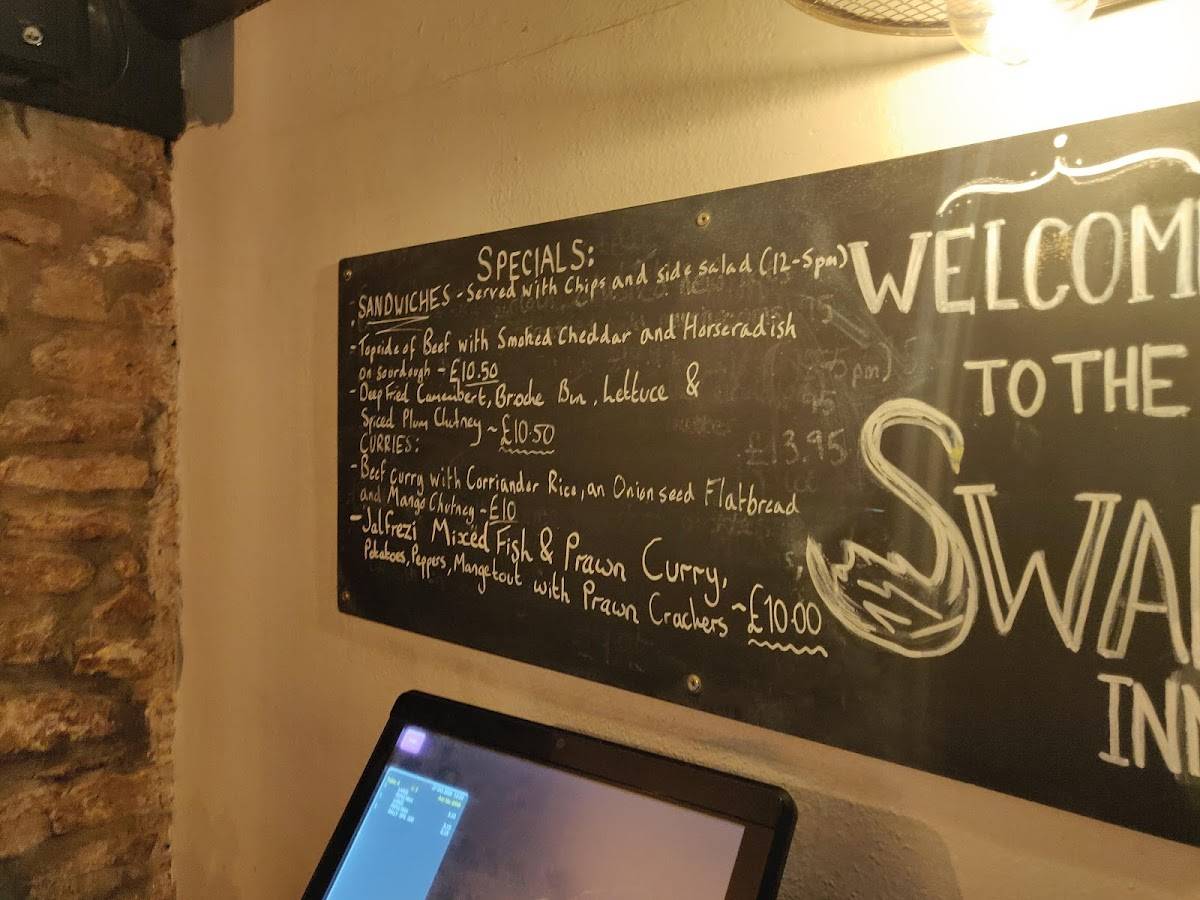 SPECIALS:
- SANDWICHES - Served with Chips and side salad (12-5pm)
- Topside of Beef with Smoked Cheddar and Horseradish
on sourdough - £10.50
- Deep Fried Camembert, Broche Bun, Lettuce &
Spiced Plum Chutney ~ £10.50
CURRIES:
- Beef curry with Corriander Rice, an Onion seed Flatbread
and Mango Chutney - £10
- Jalfrezi Mixed Fish & Prawn Curry,
Potatoes, Peppers, Mangetout with Prawn Crackers ~ £10.00
£13.95
WELCOM
TO THE
SWA
INN